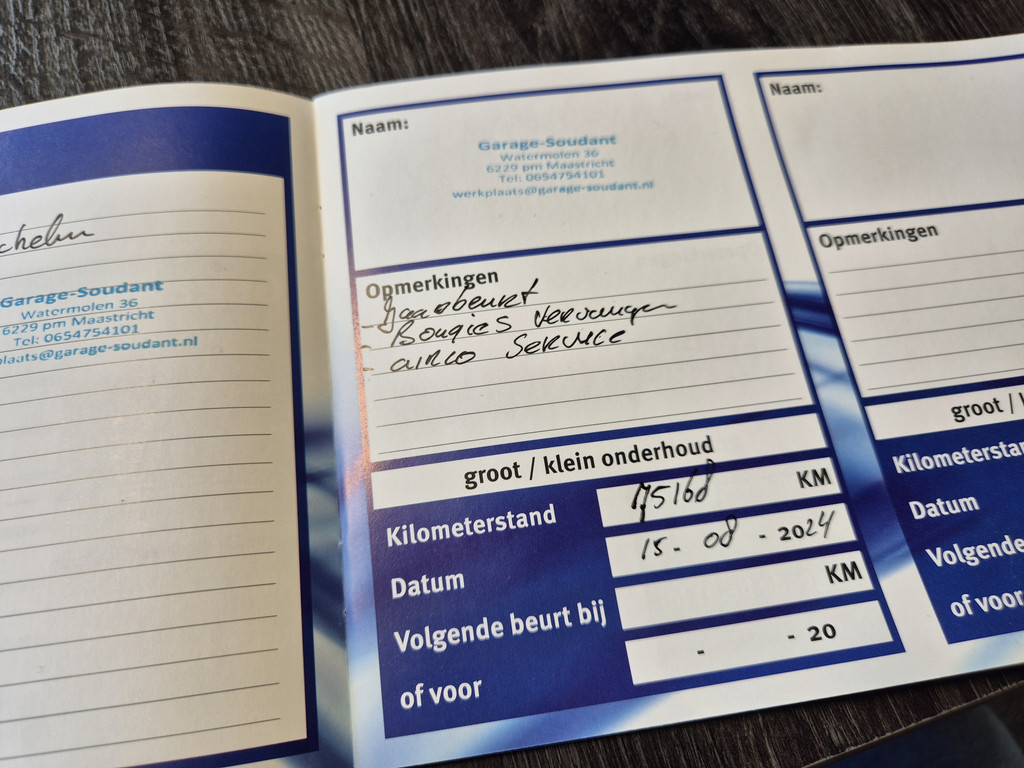 chelin
Garage-Soudant
Watermolen 36
6229 pm Maastricht
Tel: 0654754101
plaats@garage-soudant.nl
Naam:
Garage-Soudant
Watermolen 36
6229 pm Maastricht
Tel: 0654754101
werkplaats@garage-soudant.nl
Opmerkingen
- Jaarsbeurt
- Bougies vervangen
- airco service
groot / klein onderhoud
Kilometerstand 75168 KM
Datum 15 - 08 - 2024
Volgende beurt bij KM
of voor - - 20
Naam:
Opmerkingen
groot /
Kilometerstan
Datum
Volgende
of voor